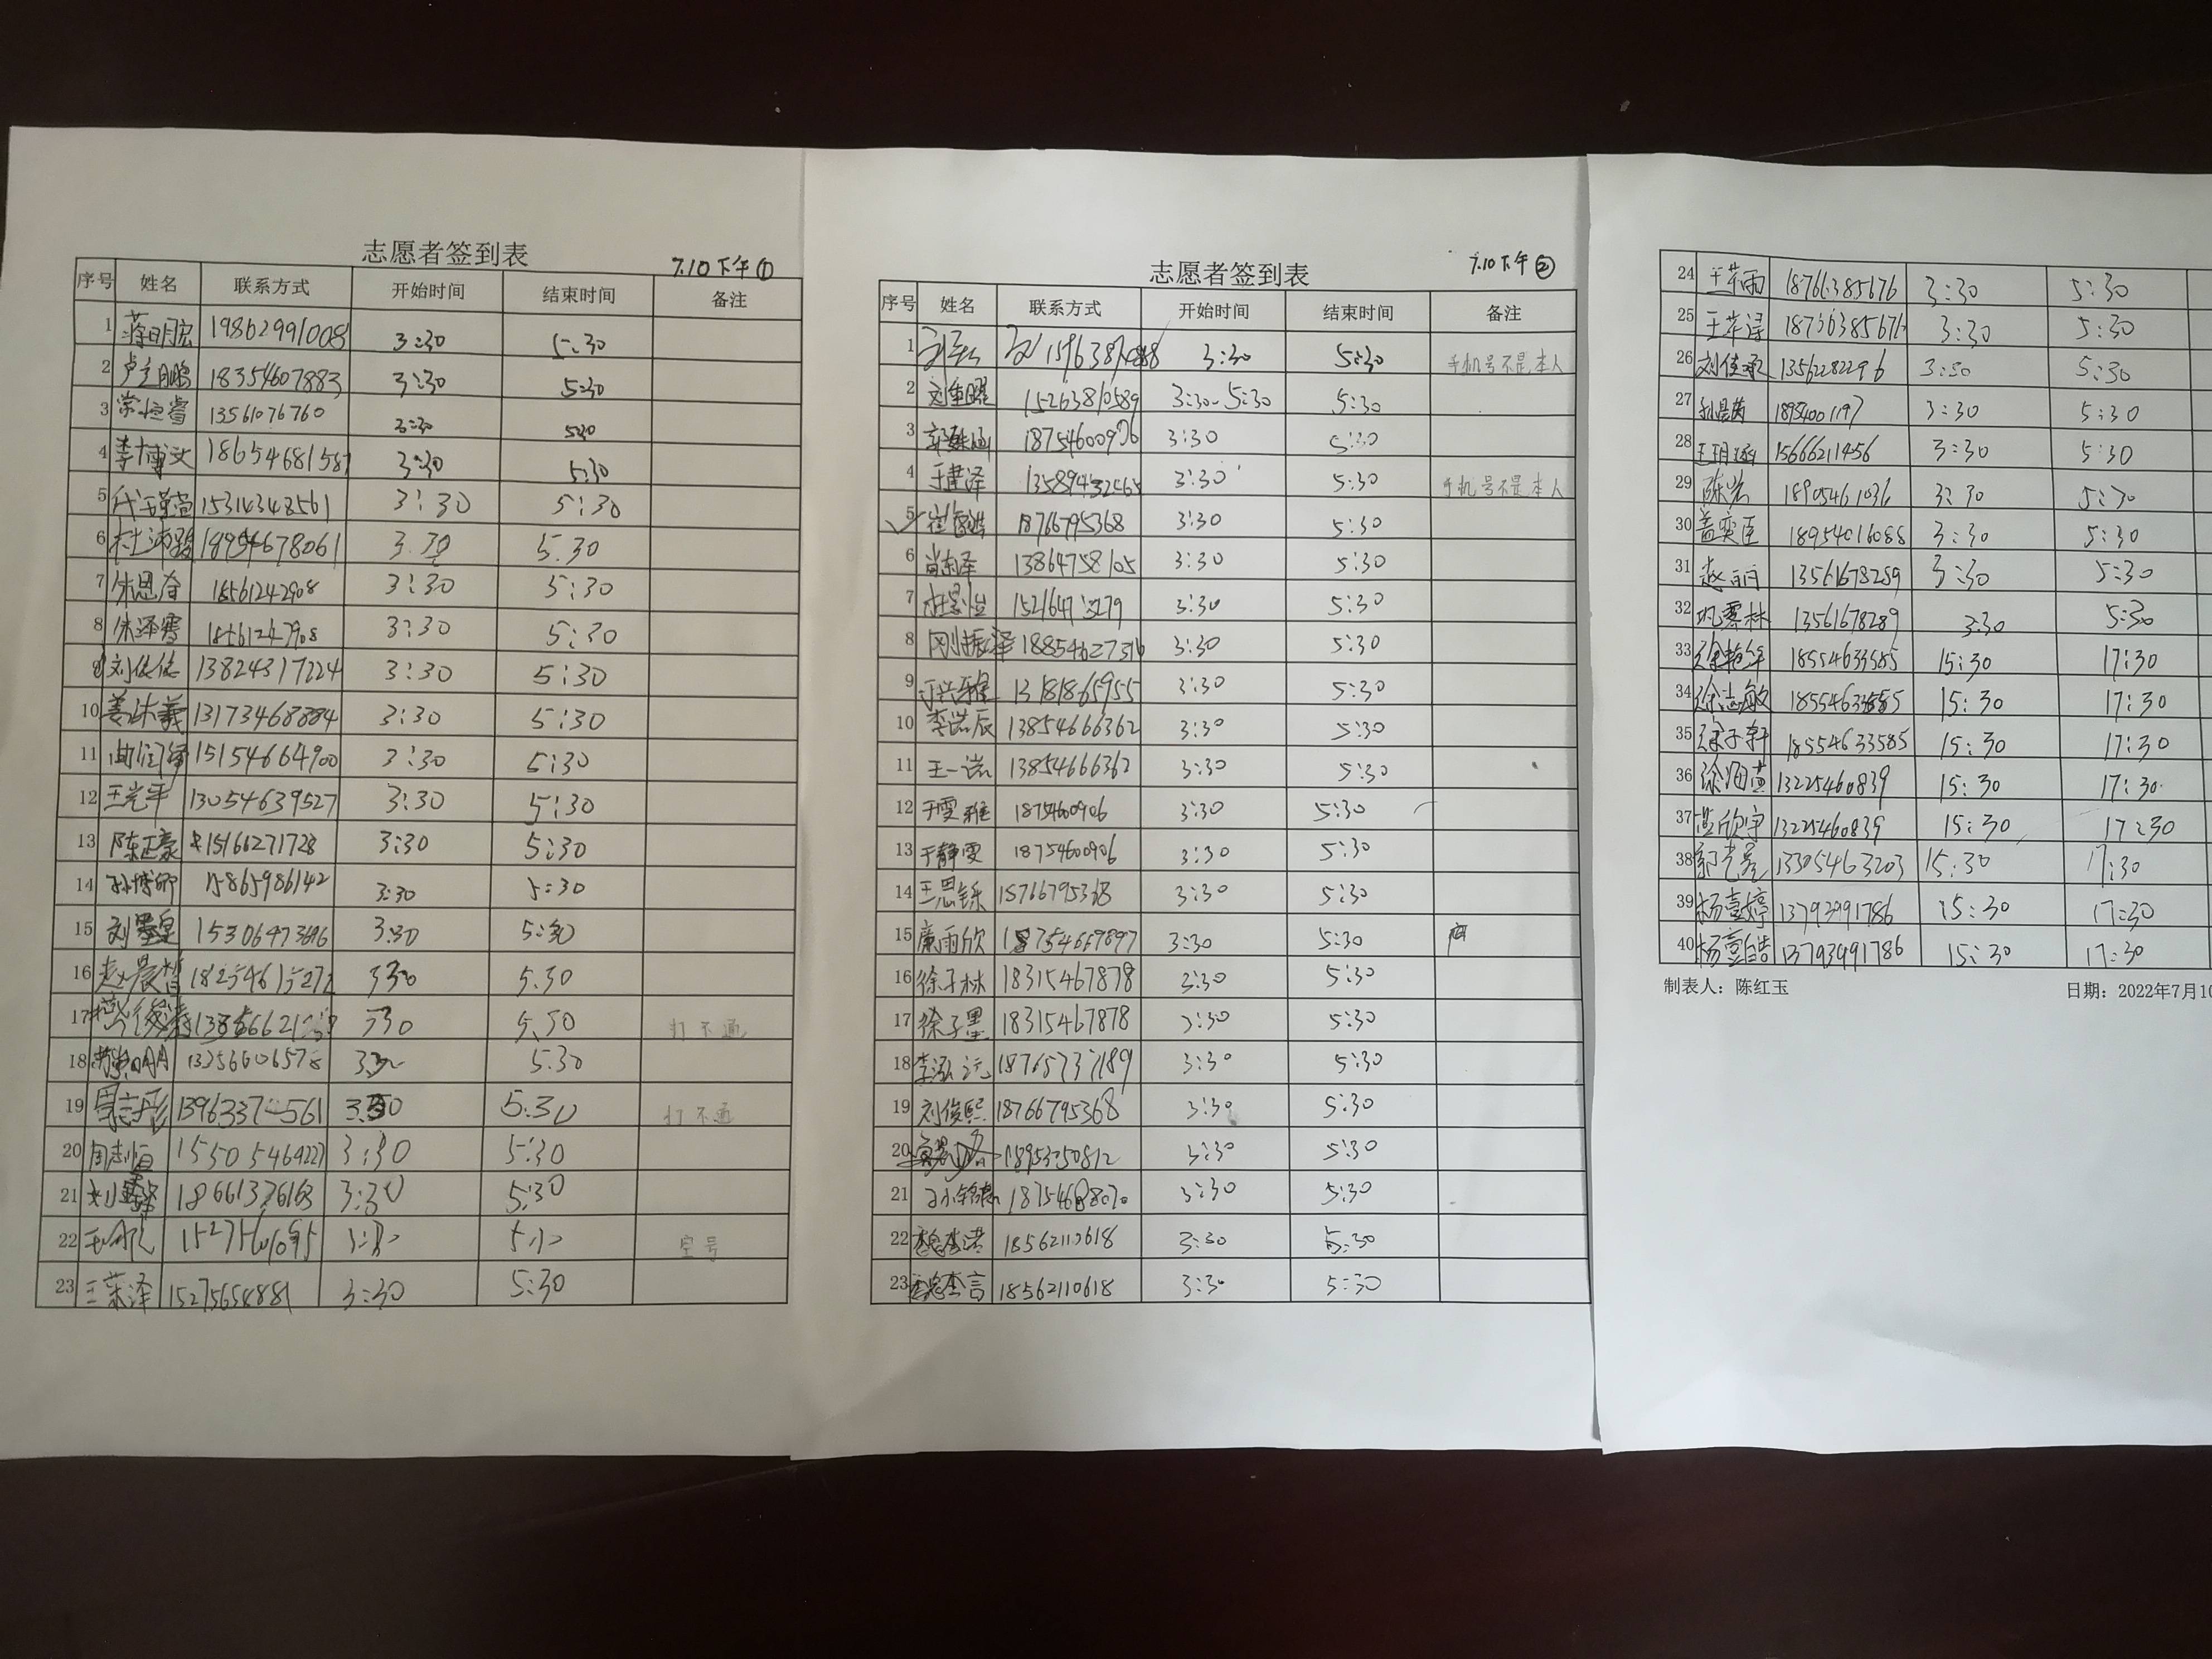 志愿者签到表
7.10下午①
序号 姓名 联系方式 开始时间 结束时间 备注
1 蒋明宏 19862991008 3:30 5:30
2 卢立鹏 18354607883 3:30 5:30
3 常恒睿 13561076760 3:30 5:30
4 李博文 18654681587 3:30 5:30
5 15314348561 3:30 5:30
6 18954678061 3.30 5.30
7 朱恩奇 18561242908 3:30 5:30
8 朱泽霄 18561242908 3:30 5:30
9 刘俊德 13824317224 3:30 5:30
10 姜沐羲 13173468884 3:30 5:30
11 15154664900 3:30 5:30
12 王光平 13054639527 3:30 5:30
13 陈正豪 15166271728 3:30 5:30
14 孙博郎 15865986142 3:30 5:30
15 刘墨皇 15306473696 3:30 5:30
16 赵晨皙 18254615272 330 5.30
17 330 5.30 打不通
18 13256606578 330 5.30
19 周志彤 3:30 5.30 打不通
20 周志恒 15505469227 3:30 5:30
21 18661326163 3:30 5:30
22 空号
23 王荣泽 15275654881 3:30 5:30
志愿者签到表
7.10下午②
序号 姓名 联系方式 开始时间 结束时间 备注
1 3:30 5:30 手机号不是本人
2 刘重曜 15263810589 3:30-5:30 5:30
3 18754600906 3:30 5:30
4 王建泽 3:30 5:30 手机号不是本人
5 18766795368 3:30 5:30
6 尚东泽 13864758105 3:30 5:30
7 3:30 5:30
8 刚振泽 18854627316 3:30 5:30
9 13181865955 3:30 5:30
10 李浩辰 13854666362 3:30 5:30
11 王一诺 13854666362 3:30 5:30
12 于雯雅 18754600906 3:30 5:30
13 于静雯 18754600906 3:30 5:30
14 王思铄 15766795368 3:30 5:30
15 廉雨欣 18754669897 3:30 5:30
16 徐子林 18315467878 3:30 5:30
17 徐子墨 18315467878 3:30 5:30
18 李泓沅 18765737189 3:30 5:30
19 刘俊熙 18766795368 3:30 5:30
20 18953250812 3:30 5:30
21 3:30 5:30
22 18562110618 3:30 5:30
23 18562110618 3:30 5:30
24 王苹雨 18766385676 3:30 5:30
25 王苹浔 18766385676 3:30 5:30
26 刘佳承 13562282296 3:30 5:30
27 18954001197 3:30 5:30
28 王玥涵 15666211456 3:30 5:30
29 陈岩 18905461036 3:30 5:30
30 盖奕臣 18954016088 3:30 5:30
31 赵丽 13561678289 3:30 5:30
32 巩霂林 13561678289 3:30 5:30
33 徐艳华 18554633585 15:30 17:30
34 徐志敏 18554633585 15:30 17:30
35 徐子轩 18554633585 15:30 17:30
36 13225460839 15:30 17:30
37 13225460839 15:30 17:30
38 13305463203 15:30 17:30
39 杨壹婷 13793991786 15:30 17:30
40 杨壹皓 13793991786 15:30 17:30
制表人：陈红玉
日期：2022年7月10